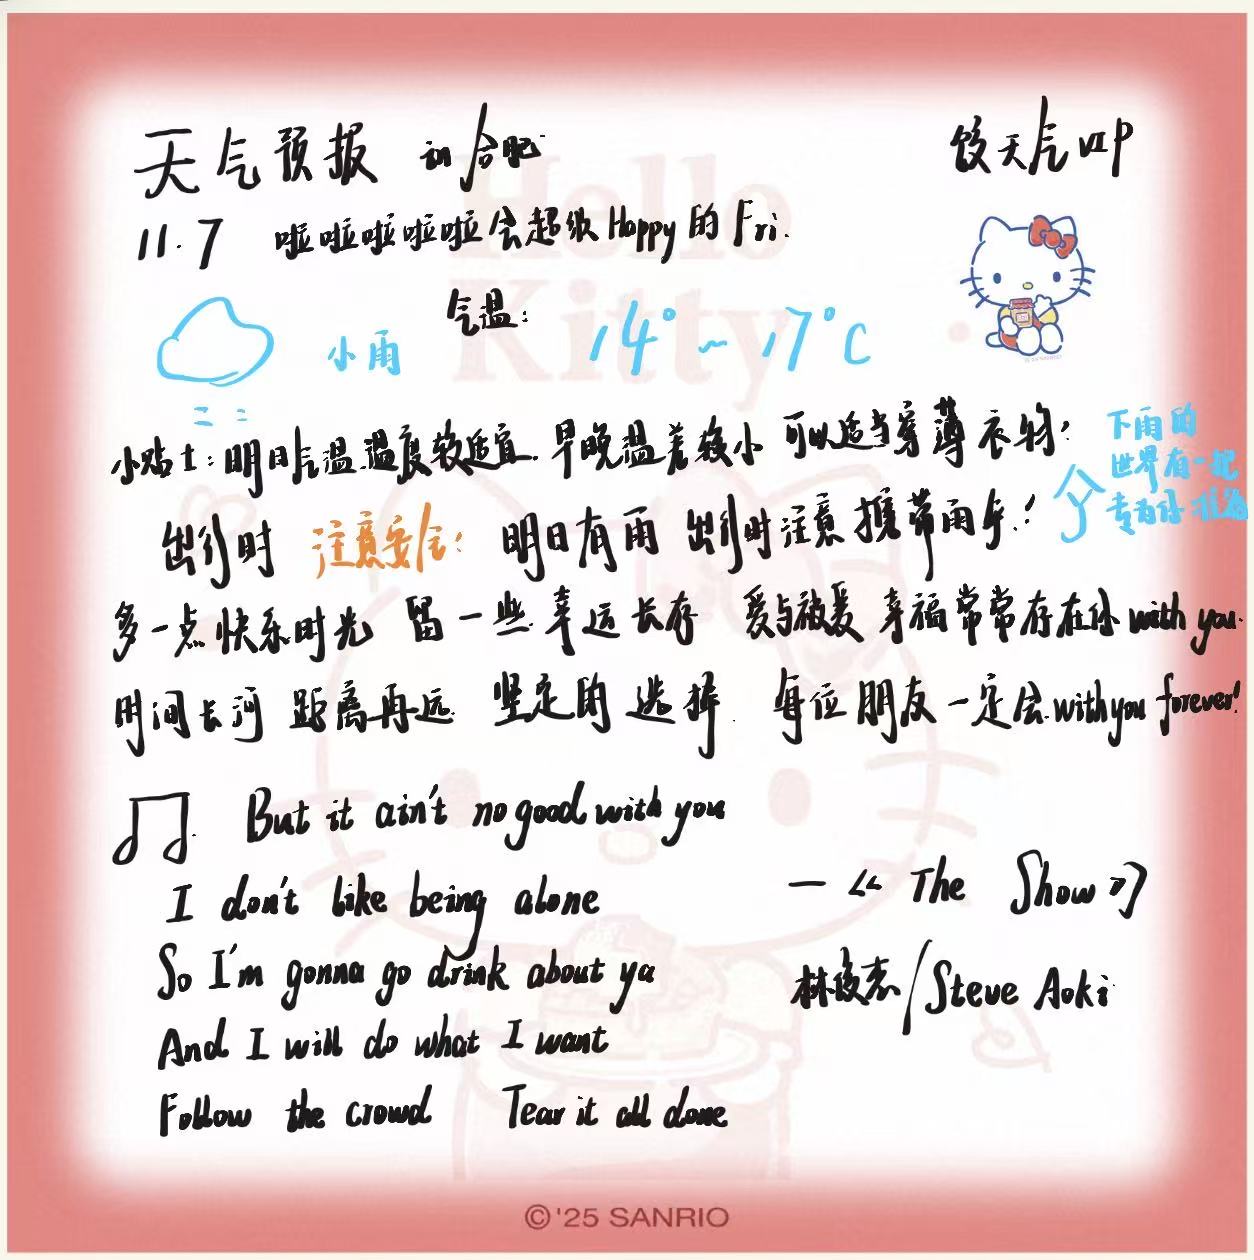 天气预报 合肥
饺天气VIP
11.7 啦啦啦啦啦会超级Happy的Fri.
Hello Kitty
气温:
小雨 14°~17°C
小贴士:明日气温温度较适宜.早晚温差较小 可以适当穿薄衣物!
下雨的
世界有一把
专为你撑
出行时 注意安全! 明日有雨 出行时注意携带雨伞!
多一点快乐时光 留一些幸运长存 爱与被爱 幸福常常存在你with you.
时间长河 距离再远 坚定的选择. 每位朋友一定会with you forever!
But it ain't no good with you
I don't like being alone
—《The Show》
So I'm gonna go drink about ya
林俊杰/Steve Aoki
And I will do what I want
Follow the crowd Tear it all done
©'25 SANRIO